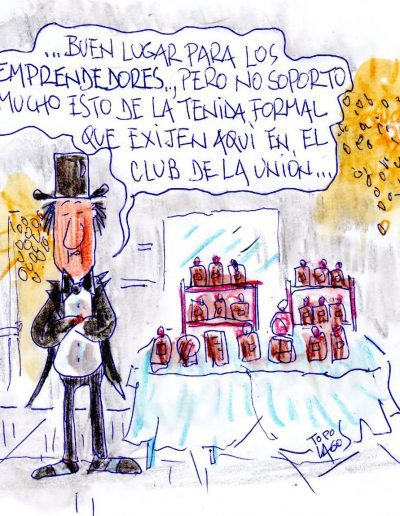 ...BUEN LUGAR PARA LOS
EMPRENDEDORES.., PERO NO SOPORTO
MUCHO ESTO DE LA TENIDA FORMAL
QUE EXIJEN AQUÍ EN EL
CLUB DE LA UNIÓN...
TOPO
LAGOS